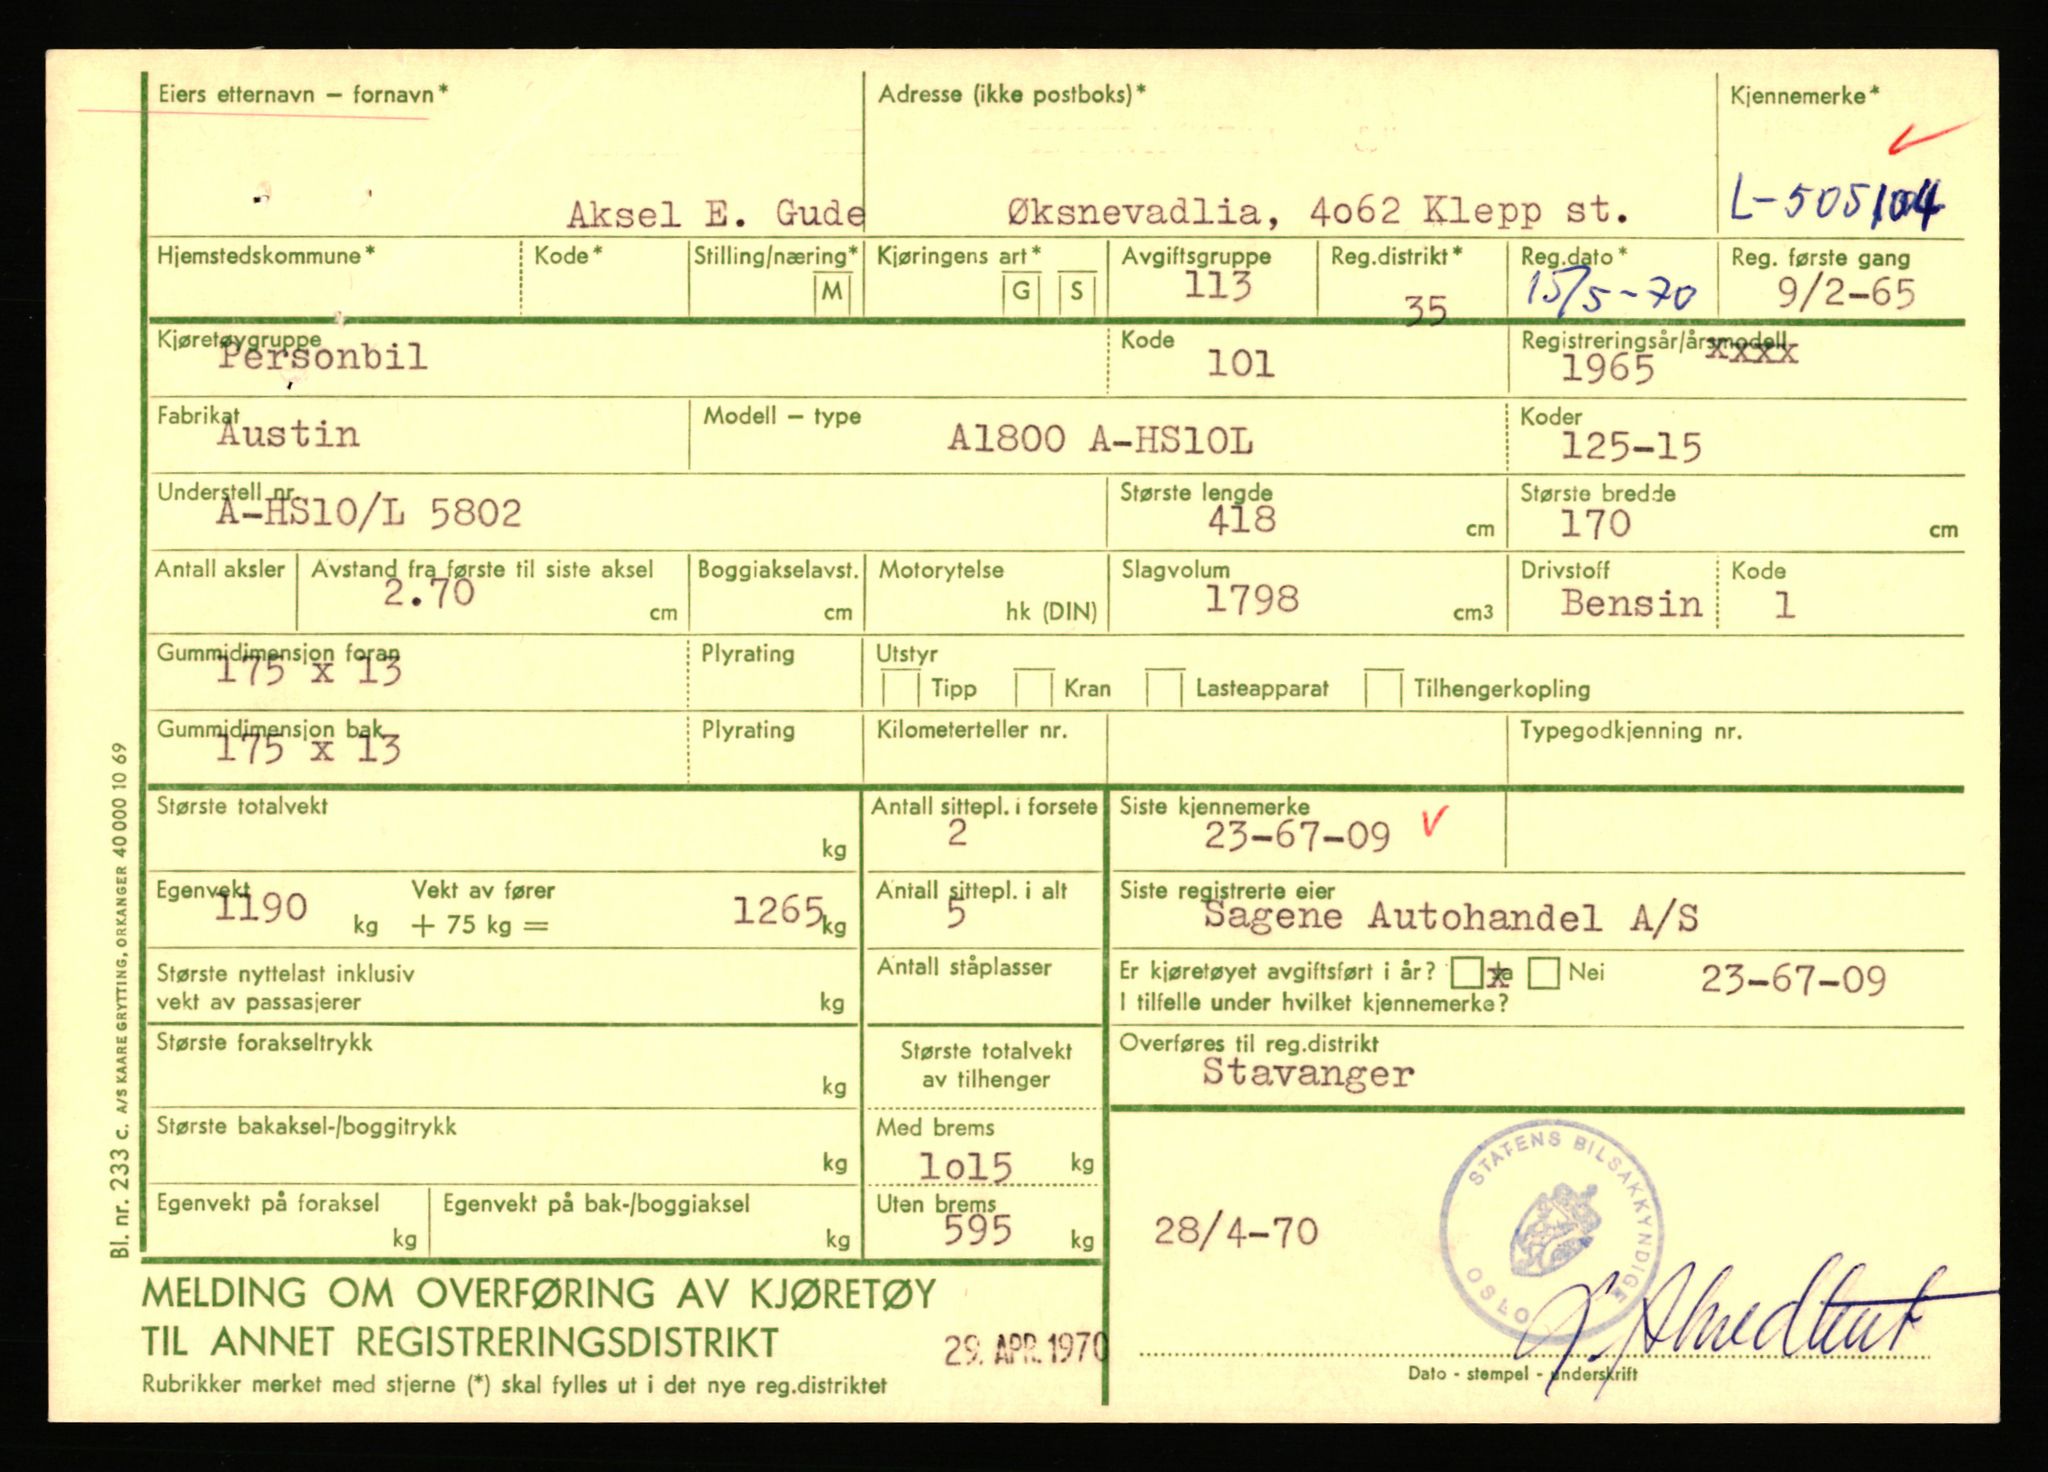 Eiers etternavn – fornavn* Adresse (ikke postboks)* Kjennemerke*
Aksel E. Gude Øksnevadlia, 4o62 Klepp st.
Hjemstedskommune* Kode* Stilling/næring* M Kjøringens art* G S Avgiftsgruppe 113 Reg.distrikt* 35 Reg.dato* 15/5-70 Reg. første gang 9/2-65
Kjøretøygruppe Personbil Kode 101 Registreringsår/årsmodell xxxx 1965
Fabrikat Austin Modell – type A1800 A-HS10L Koder 125-15
Understell nr. A-HS10/L 5802 Største lengde 418 cm Største bredde 170 cm
Antall aksler Avstand fra første til siste aksel 2.70 cm Boggiakselavst. cm Motorytelse hk (DIN) Slagvolum 1798 cm3 Drivstoff Bensin Kode 1
Gummidimensjon foran 175 x 13 Plyrating Utstyr Tipp Kran Lasteapparat Tilhengerkopling
Gummidimensjon bak 175 x 13 Plyrating Kilometerteller nr. Typegodkjenning nr.
Største totalvekt kg Antall sittepl. i forsete 2 Siste kjennemerke 23-67-09
Egenvekt 1190 kg Vekt av fører + 75 kg = 1265 kg Antall sittepl. i alt 5 Siste registrerte eier Sagene Autohandel A/S
Største nyttelast inklusiv vekt av passasjerer kg Antall ståplasser Er kjøretøyet avgiftsført i år? x Ja Nei 23-67-09
I tilfelle under hvilket kjennemerke?
Største forakseltrykk kg Største totalvekt av tilhenger Overføres til reg.distrikt Stavanger
Største bakaksel-/boggitrykk kg Med brems 1o15 kg
Egenvekt på foraksel kg Egenvekt på bak-/boggiaksel kg Uten brems 595 kg
28/4-70
STATENS BILSAKKYNDIGE OSLO
MELDING OM OVERFØRING AV KJØRETØY
TIL ANNET REGISTRERINGSDISTRIKT
29. APR. 1970
Rubrikker merket med stjerne (*) skal fylles ut i det nye reg.distriktet
Dato - stempel - underskrift
Bl. nr. 233 c. A/S KAARE GRYTTING, ORKANGER 40 000 10 69